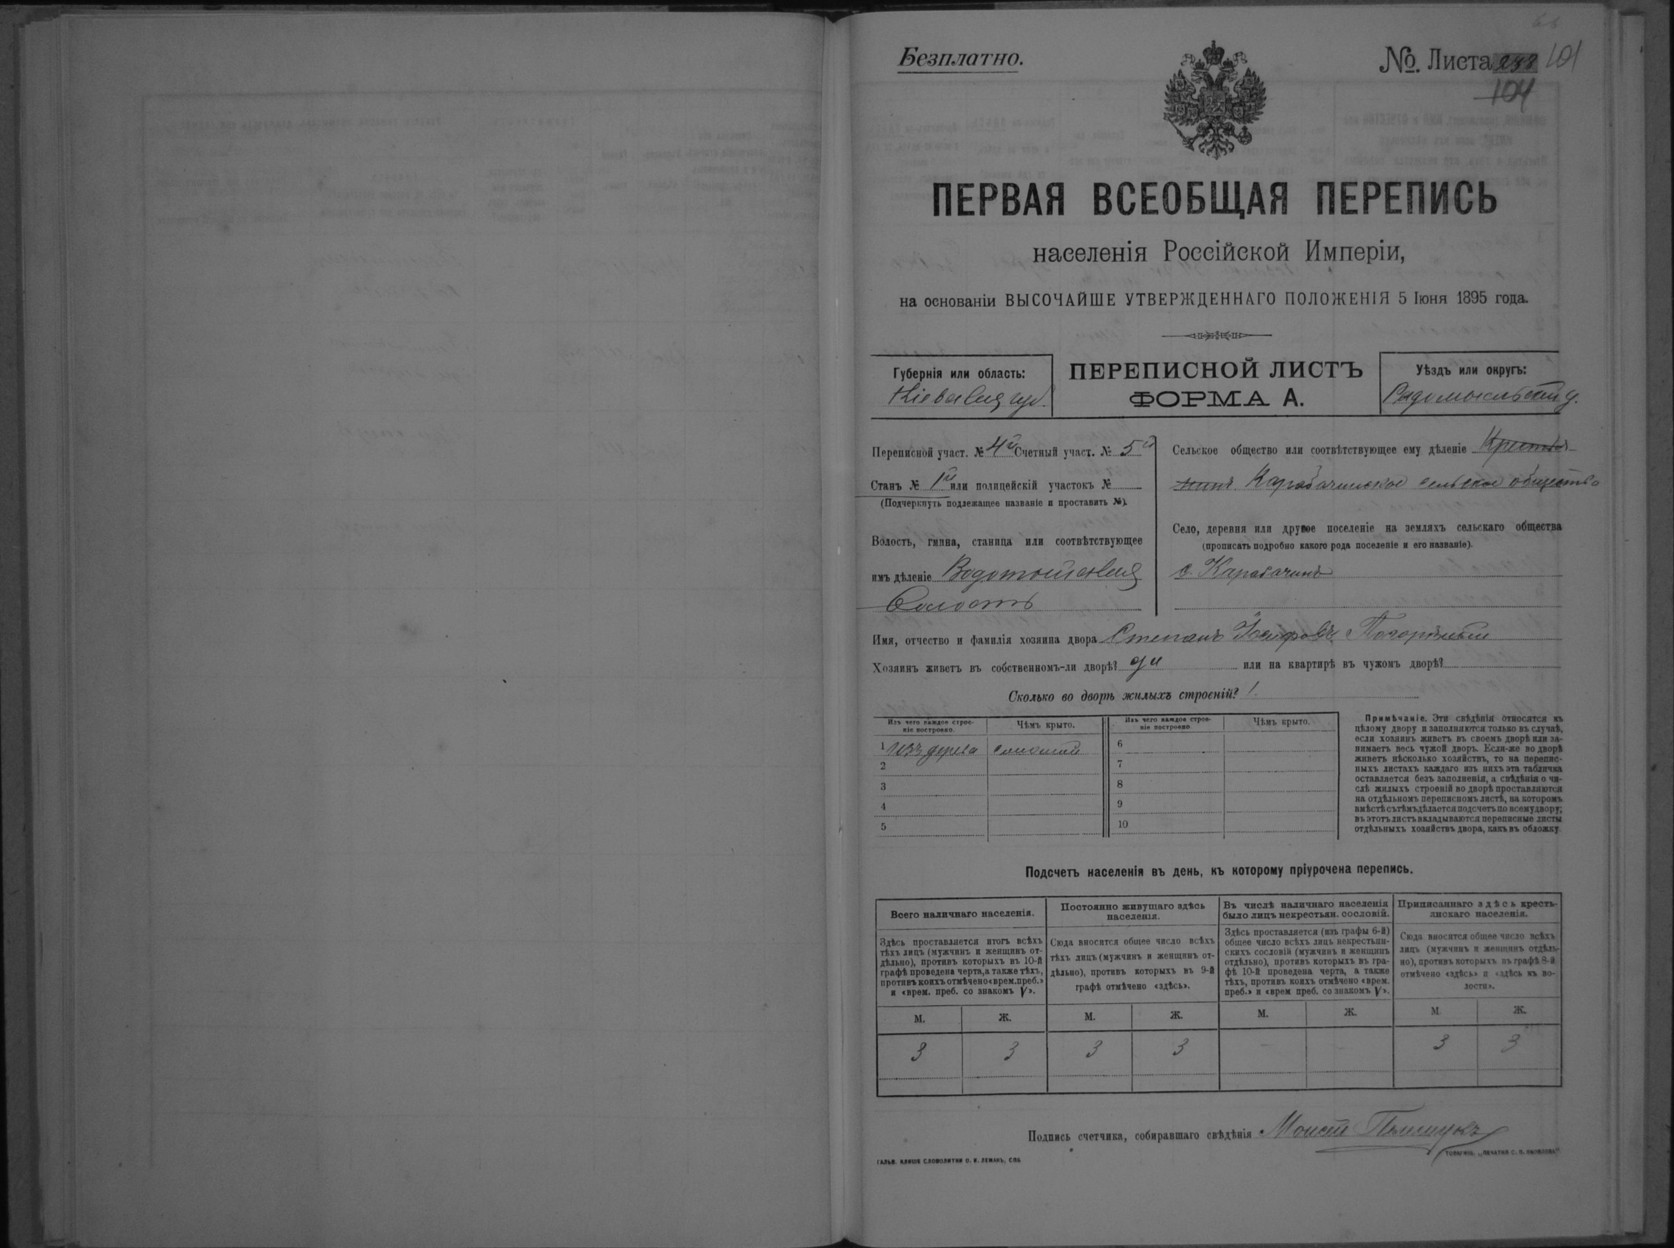 Безплатно.
№. Листа 101
104
ПЕРВАЯ ВСЕОБЩАЯ ПЕРЕПИСЬ
населенія Россійской Имперіи,
на основаніи ВЫСОЧАЙШЕ УТВЕРЖДЕННАГО ПОЛОЖЕНІЯ 5 Іюня 1895 года.
Губернія или область:
Кіевская губ.
ПЕРЕПИСНОЙ ЛИСТЪ
ФОРМА А.
Уѣздъ или округъ:
Радомысльскій у.
Переписной участ. № 4й Счетный участ. № 5й
Станъ № 1й или полицейскій участокъ №
(Подчеркнуть подлежащее названіе и проставить №).
Волость, гмина, станица или соотвѣтствующее
имъ дѣленіе Водотыйская
Волость
Сельское общество или соотвѣтствующее ему дѣленіе
Карабачинское сельское общество
Село, деревня или другое поселеніе на земляхъ сельскаго общества
(прописать подробно какого рода поселеніе и его названіе).
с. Карабачинъ
Имя, отчество и фамилія хозяина двора Степанъ Іосифовъ Погорѣлый
Хозяинъ живетъ въ собственномъ-ли дворѣ? да или на квартирѣ въ чужомъ дворѣ?
Сколько во дворѣ жилыхъ строеній? 1
Изъ чего каждое строеніе построено. Чѣмъ крыто. Изъ чего каждое строеніе построено Чѣмъ крыто.
1 изъ дерева соломой 6
2 7
3 8
4 9
5 10
Примѣчаніе. Эти свѣдѣнія относятся къ
цѣлому двору и заполняются только въ случаѣ,
если хозяинъ живетъ въ своемъ дворѣ или за-
нимаетъ весь чужой дворъ. Если-же во дворѣ
живетъ нѣсколько хозяйствъ, то на перепис-
ныхъ листахъ каждаго изъ нихъ эта табличка
оставляется безъ заполненія, а свѣдѣнія о чи-
слѣ жилыхъ строеній во дворѣ проставляются
на отдѣльномъ переписномъ листѣ, на которомъ
вмѣстѣ съ тѣмъ дѣлается подсчетъ по всему двору;
въ этотъ листъ вкладываются переписные листы
отдѣльныхъ хозяйствъ двора, какъ въ обложку.
Подсчетъ населенія въ день, къ которому пріурочена перепись.
Всего наличнаго населенія.
Здѣсь проставляется итогъ всѣхъ
тѣхъ лицъ (мужчинъ и женщинъ от-
дѣльно), противъ которыхъ въ 10-й
графѣ проведена черта, а также тѣхъ,
противъ коихъ отмѣчено «врем. преб.»
и «врем. преб. со знакомъ V».
Постоянно живущаго здѣсь
населенія.
Сюда вносится общее число всѣхъ
тѣхъ лицъ (мужчинъ и женщинъ от-
дѣльно), противъ которыхъ въ 9-й
графѣ отмѣчено «здѣсь».
Въ числѣ наличнаго населенія
было лицъ некрестьян. сословій.
Здѣсь проставляется (изъ графы 6-й)
общее число всѣхъ лицъ некрестьян-
скихъ сословій (мужчинъ и женщинъ
отдѣльно), противъ которыхъ въ гра-
фѣ 10-й проведена черта, а также
тѣхъ, противъ коихъ отмѣчено «врем.
преб.» и «врем преб. со знакомъ V».
Приписаннаго здѣсь кресть-
янскаго населенія.
Сюда вносится общее число всѣхъ
лицъ (мужчинъ и женщинъ отдѣль-
но), противъ которыхъ въ графѣ 8-й
отмѣчено «здѣсь» и «здѣсь въ во-
лости».
М. Ж. М. Ж. М. Ж. М. Ж.
3 3 3 3 - - 3 3
Подпись счетчика, собиравшаго свѣдѣнія Моисей
ГАЛЬВ. КЛИШЕ СЛОВОЛИТНИ О. И. ЛЕМАНЪ, СПБ.
ТОВАРИЩ. „ПЕЧАТНЯ С. П. ЯКОВЛЕВА“